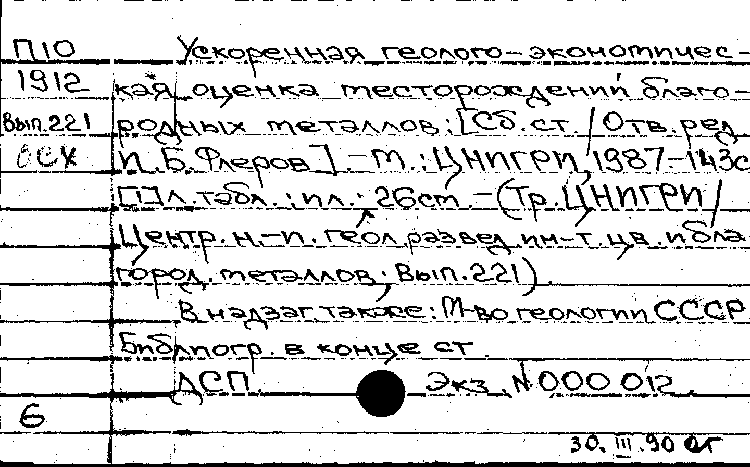 П10 Ускоренная геолого-экономичес-
1912 кая оценка месторождений благо-
Вып.221 родных металлов: [Сб. ст. / Отв. ред.
И. Б. Флеров]. - М.: ЦНИГРИ, 1987-143с
л. табл.: ил.; 26см. - (Тр. ЦНИГРИ/
Центр. н.-и. геол. развед. ин-т. цв. и бла-
город. металлов; Вып.221).
В надзаг. также: М-во геологии СССР
Библиогр. в конце ст.
ДСП. Экз. N 000 012.
6
30. III. 90